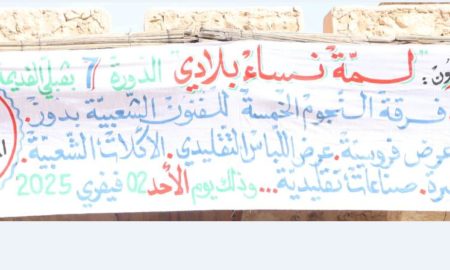 لمّة نساء بلادي الدورة 7 بقبلي القديمة
فرقة النجوم الخمسة للفنون الشعبية بدوز.
عرض فروسية. عرض اللباس التقليدي. الأكلات الشعبية.
صناعات تقليدية... وذلك يوم الأحد 02 فيفري 2025